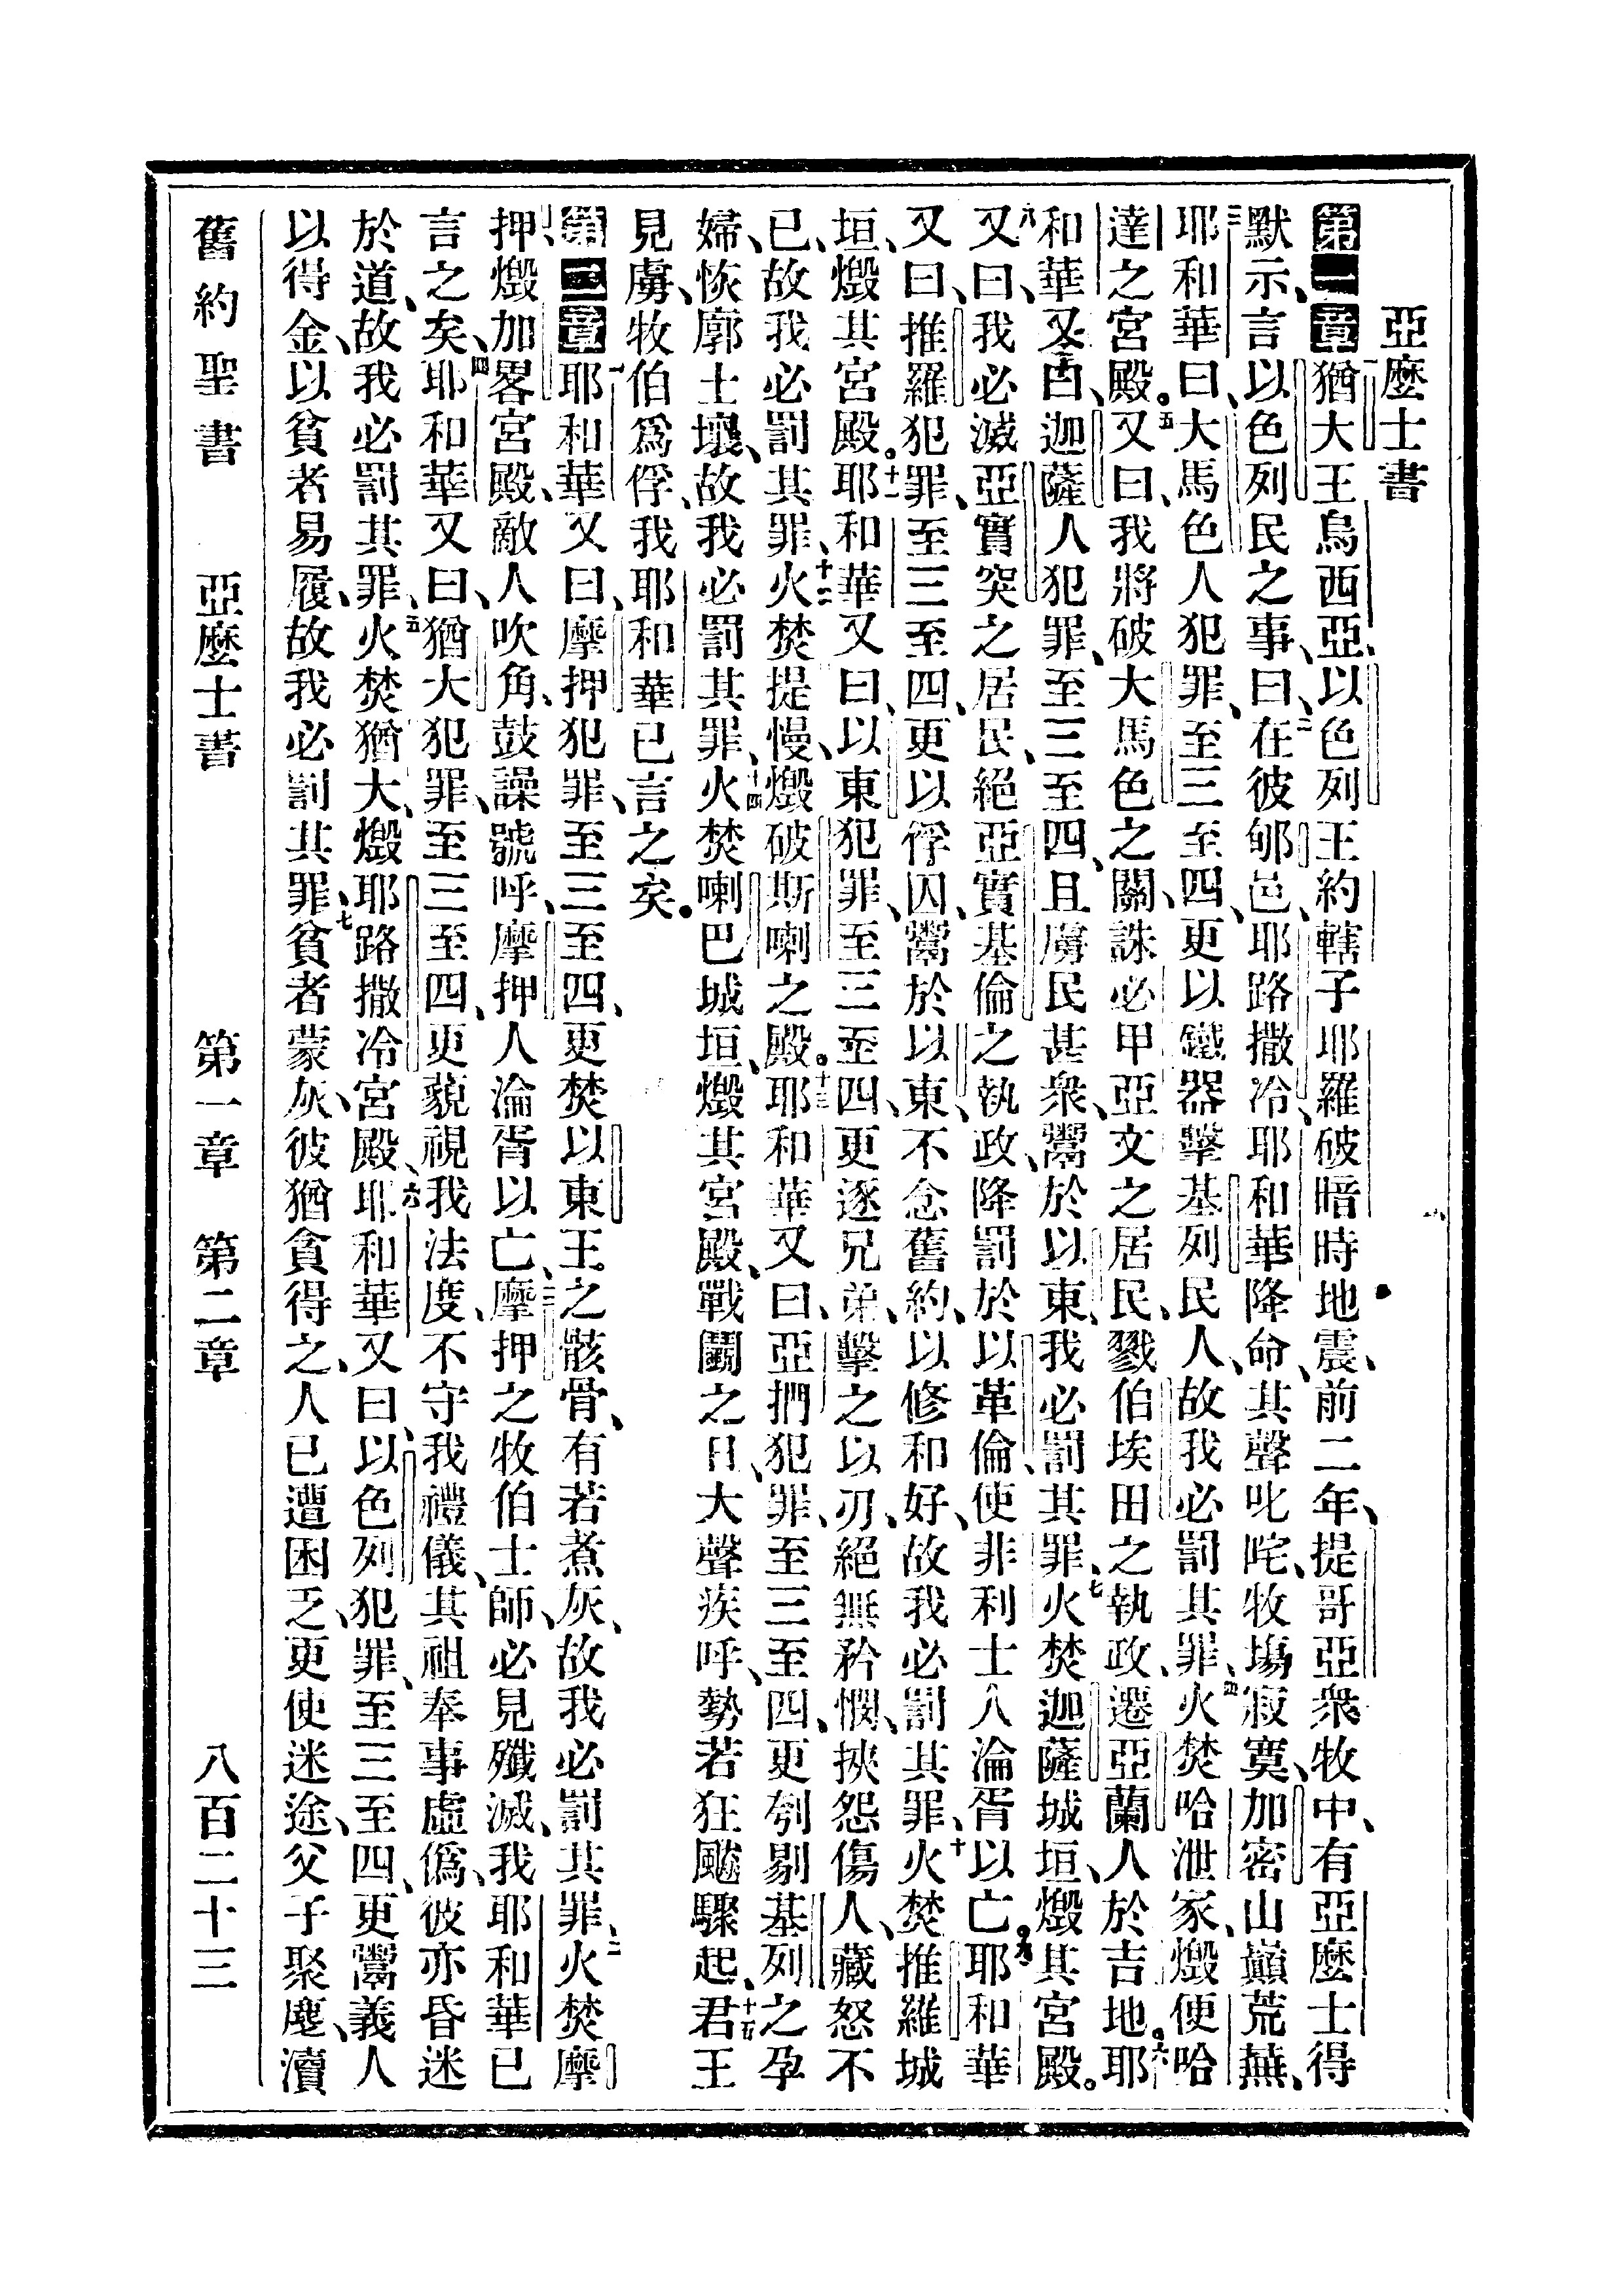 亞麼士書
第一章一猶大王烏西亞、以色列王約轄子耶羅破暗時、地震、前二年、提哥亞衆牧中、有亞麼士得
默示、言以色列民之事、曰、二在彼郇邑、耶路撒冷、耶和華降命、其聲叱咤、牧塲寂寞、加密山巔荒蕪、
三耶和華曰、大馬色人犯罪、至三至四、更以鐵器擊基列民人、故我必罰其罪、四火焚哈泄家、燬便哈
達之宮殿。五又曰、我將破大馬色之關、誅必甲亞文之居民、戮伯埃田之執政、遷亞蘭人於吉地。六耶
和華又曰、迦薩人犯罪、至三至四、且虜民甚衆、鬻於以東、我必罰其罪、七火焚迦薩城垣、燬其宮殿。
八又曰、我必滅亞實突之居民、絕亞實基倫之執政、降罰於以革倫、使非利士人淪胥以亡。九耶和華
又曰、推羅犯罪、至三至四、更以俘囚、鬻於以東、不念舊約、以修和好、故我必罰其罪、十火焚推羅城
垣、燬其宮殿。十一耶和華又曰、以東犯罪、至三至四、更逐兄弟、擊之以刃、絕無矜憫、挾怨傷人、藏怒不
已、故我必罰其罪、十二火焚提慢、燬破斯喇之殿。十三耶和華又曰、亞捫犯罪、至三至四、更刳剔基列之孕
婦、恢廓土壤、故我必罰其罪、十四火焚喇巴城垣、燬其宮殿、戰鬭之日、大聲疾呼、勢若狂飈驟起、十五君王
見虜、牧伯爲俘、我耶和華已言之矣。
第二章一耶和華又曰、摩押犯罪、至三至四、更焚以東王之骸骨、有若煮灰、故我必罰其罪、二火焚摩
押、燬加畧宮殿、敵人吹角、鼓譟號呼、摩押人淪胥以亡、三摩押之牧伯士師、必見殲滅、我耶和華已
言之矣、四耶和華又曰、猶大犯罪、至三至四、更藐視我法度、不守我禮儀、其祖奉事虛僞、彼亦昏迷
於道、故我必罰其罪、五火焚猶大、燬耶路撒冷宮殿、六耶和華又曰、以色列犯罪、至三至四、更鬻義人
以得金、以貧者易履、故我必罰其罪、七貧者蒙灰、彼猶貪得之、人已遭困乏、更使迷途、父子聚麀、瀆
舊約聖書 亞麼士書 第一章 第二章 八百二十三